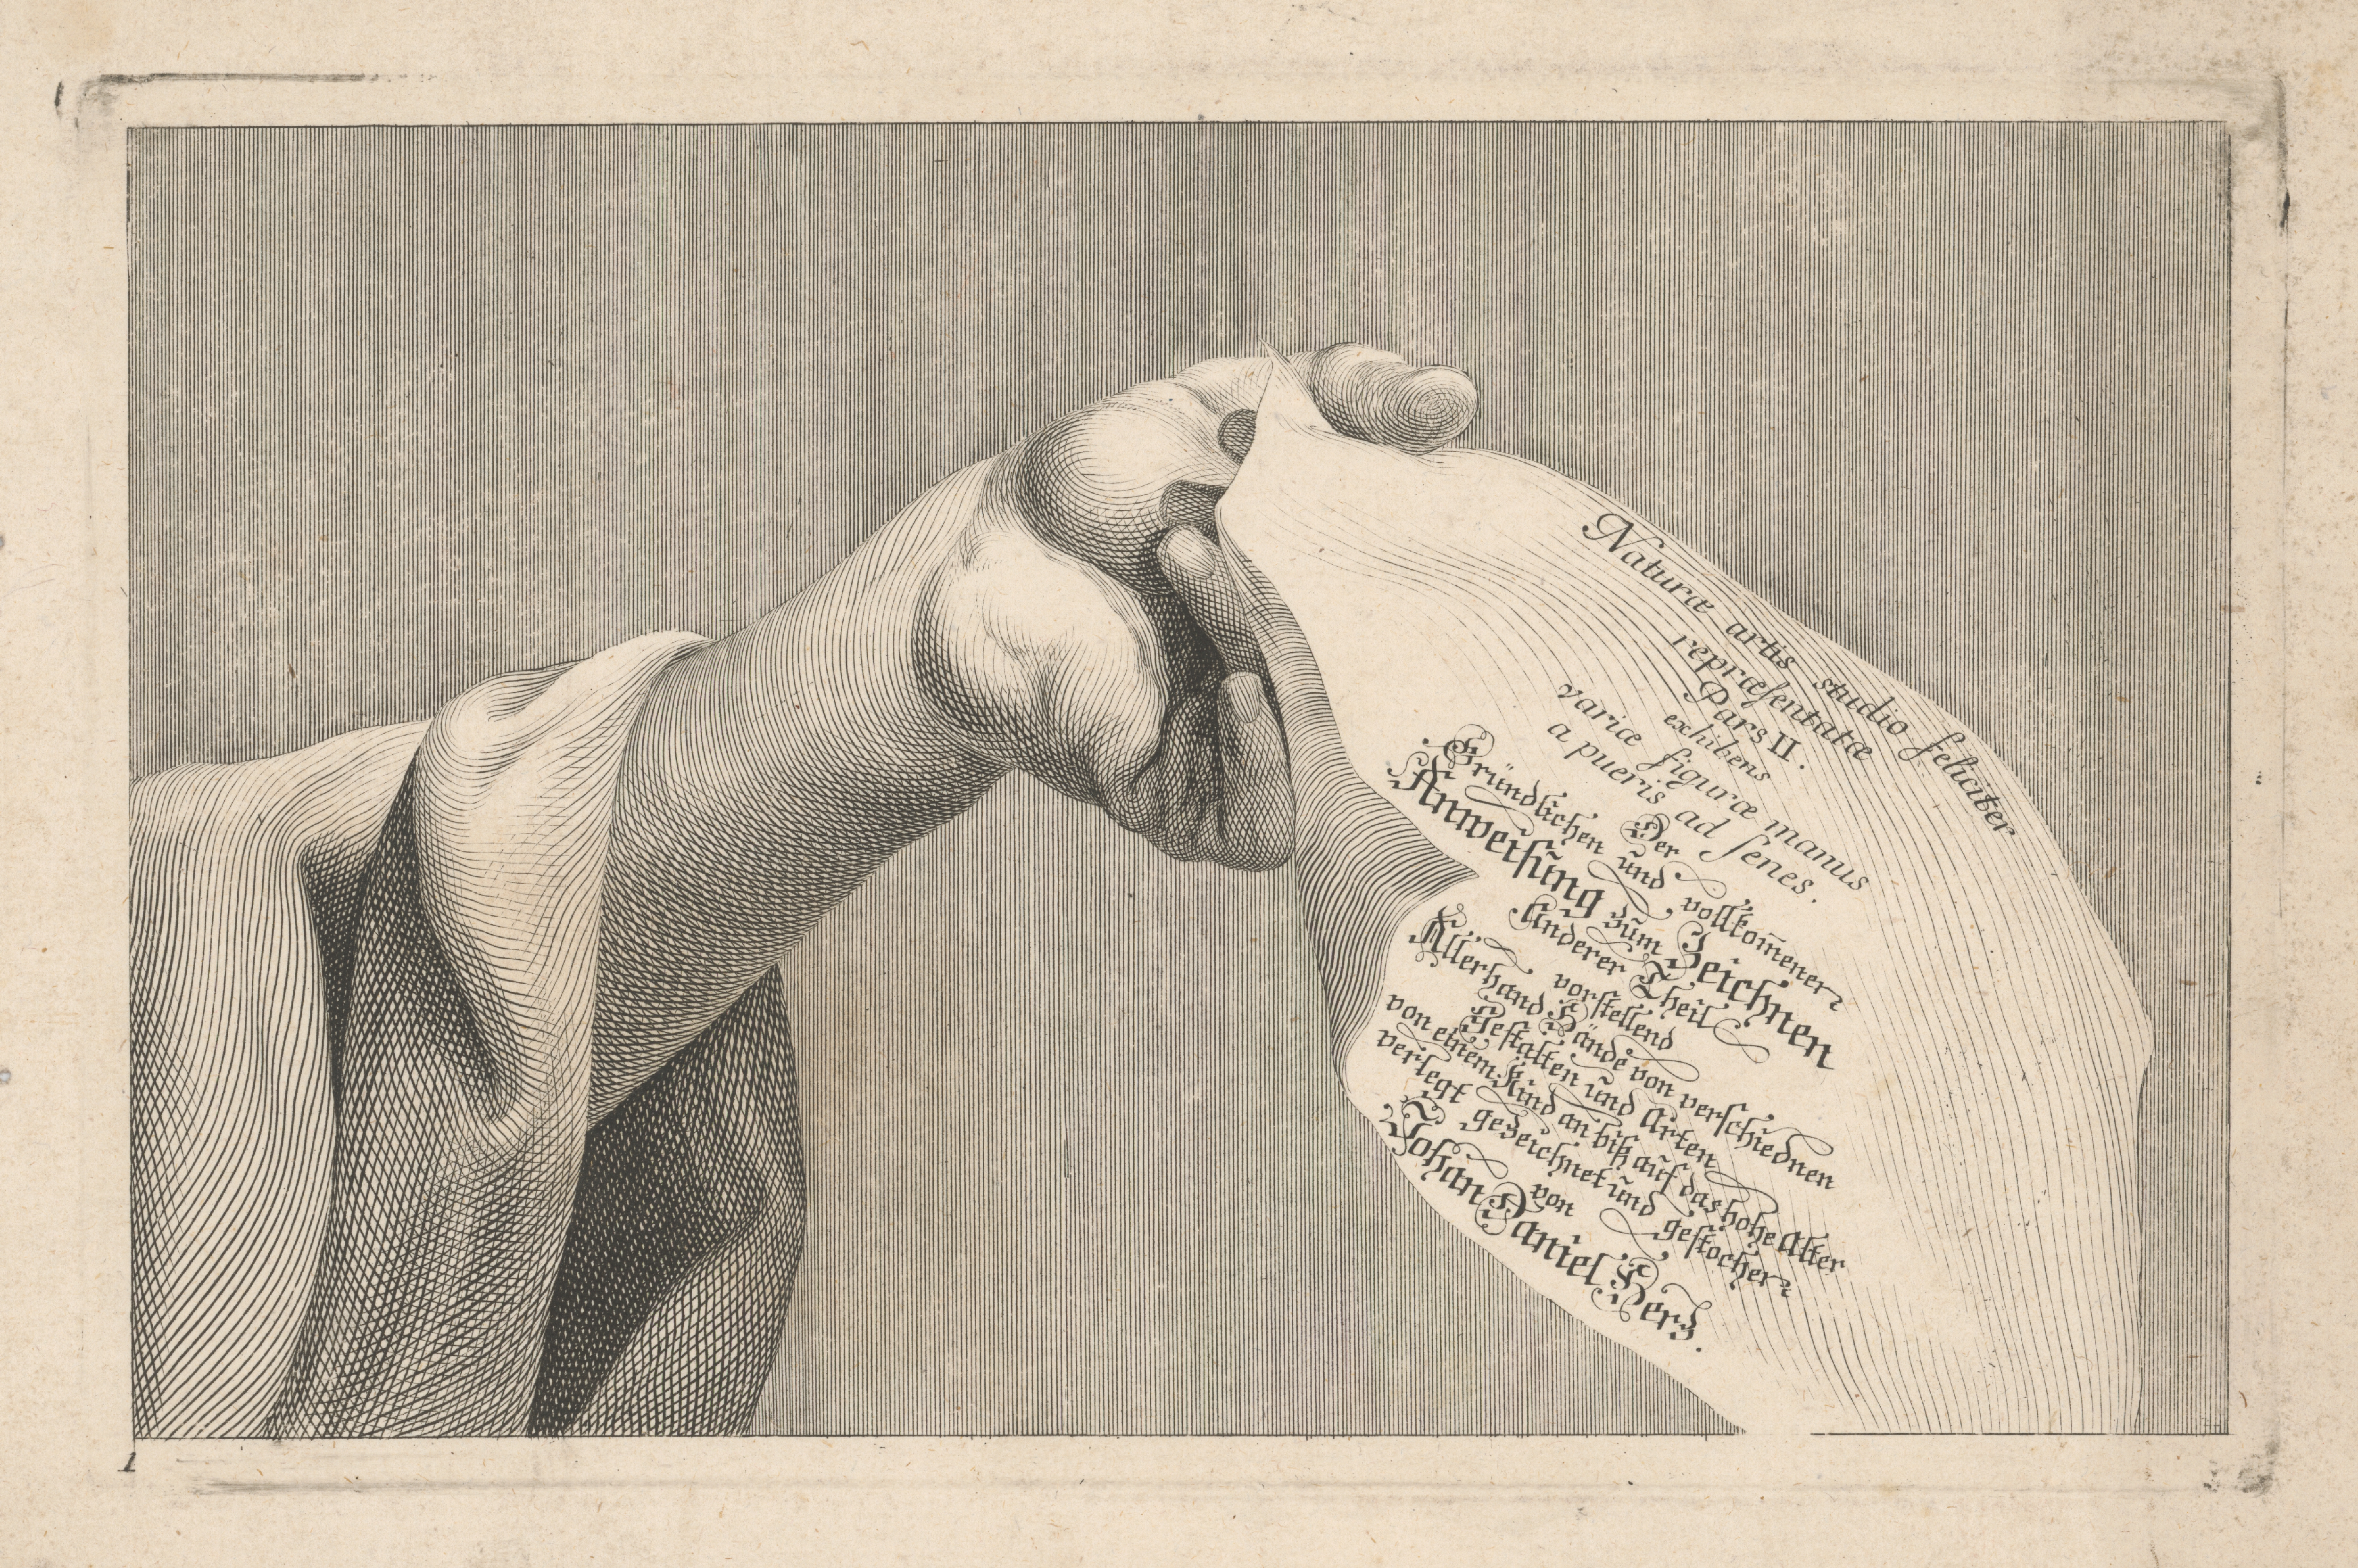 Naturæ artis studio feliciter
repræſentatæ
Pars II.
exhibens
variæ figuræ manus
a pueris ad ſenes.
Der
Gründlichen ũnd vollkom̄ener
Anweiſũng zũm Zeichnen
Anderer Theil
vorſtellend
Allerhand Hände von verſchiednen
Geſtalten ũnd Arten
von einem Kind an biß aũf das hohe Alter
verlegt gezeichnet ũnd geſtochen
von
Johan Daniel Herz.
1